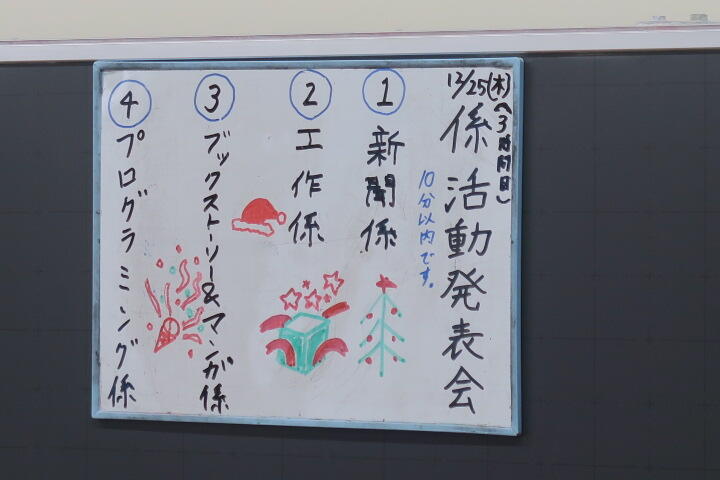 12/25(木)(3時間目)
係活動発表会
10分以内です。
① 新聞係
② 工作係
③ ブックストーリー&マンガ係
④ プログラミング係